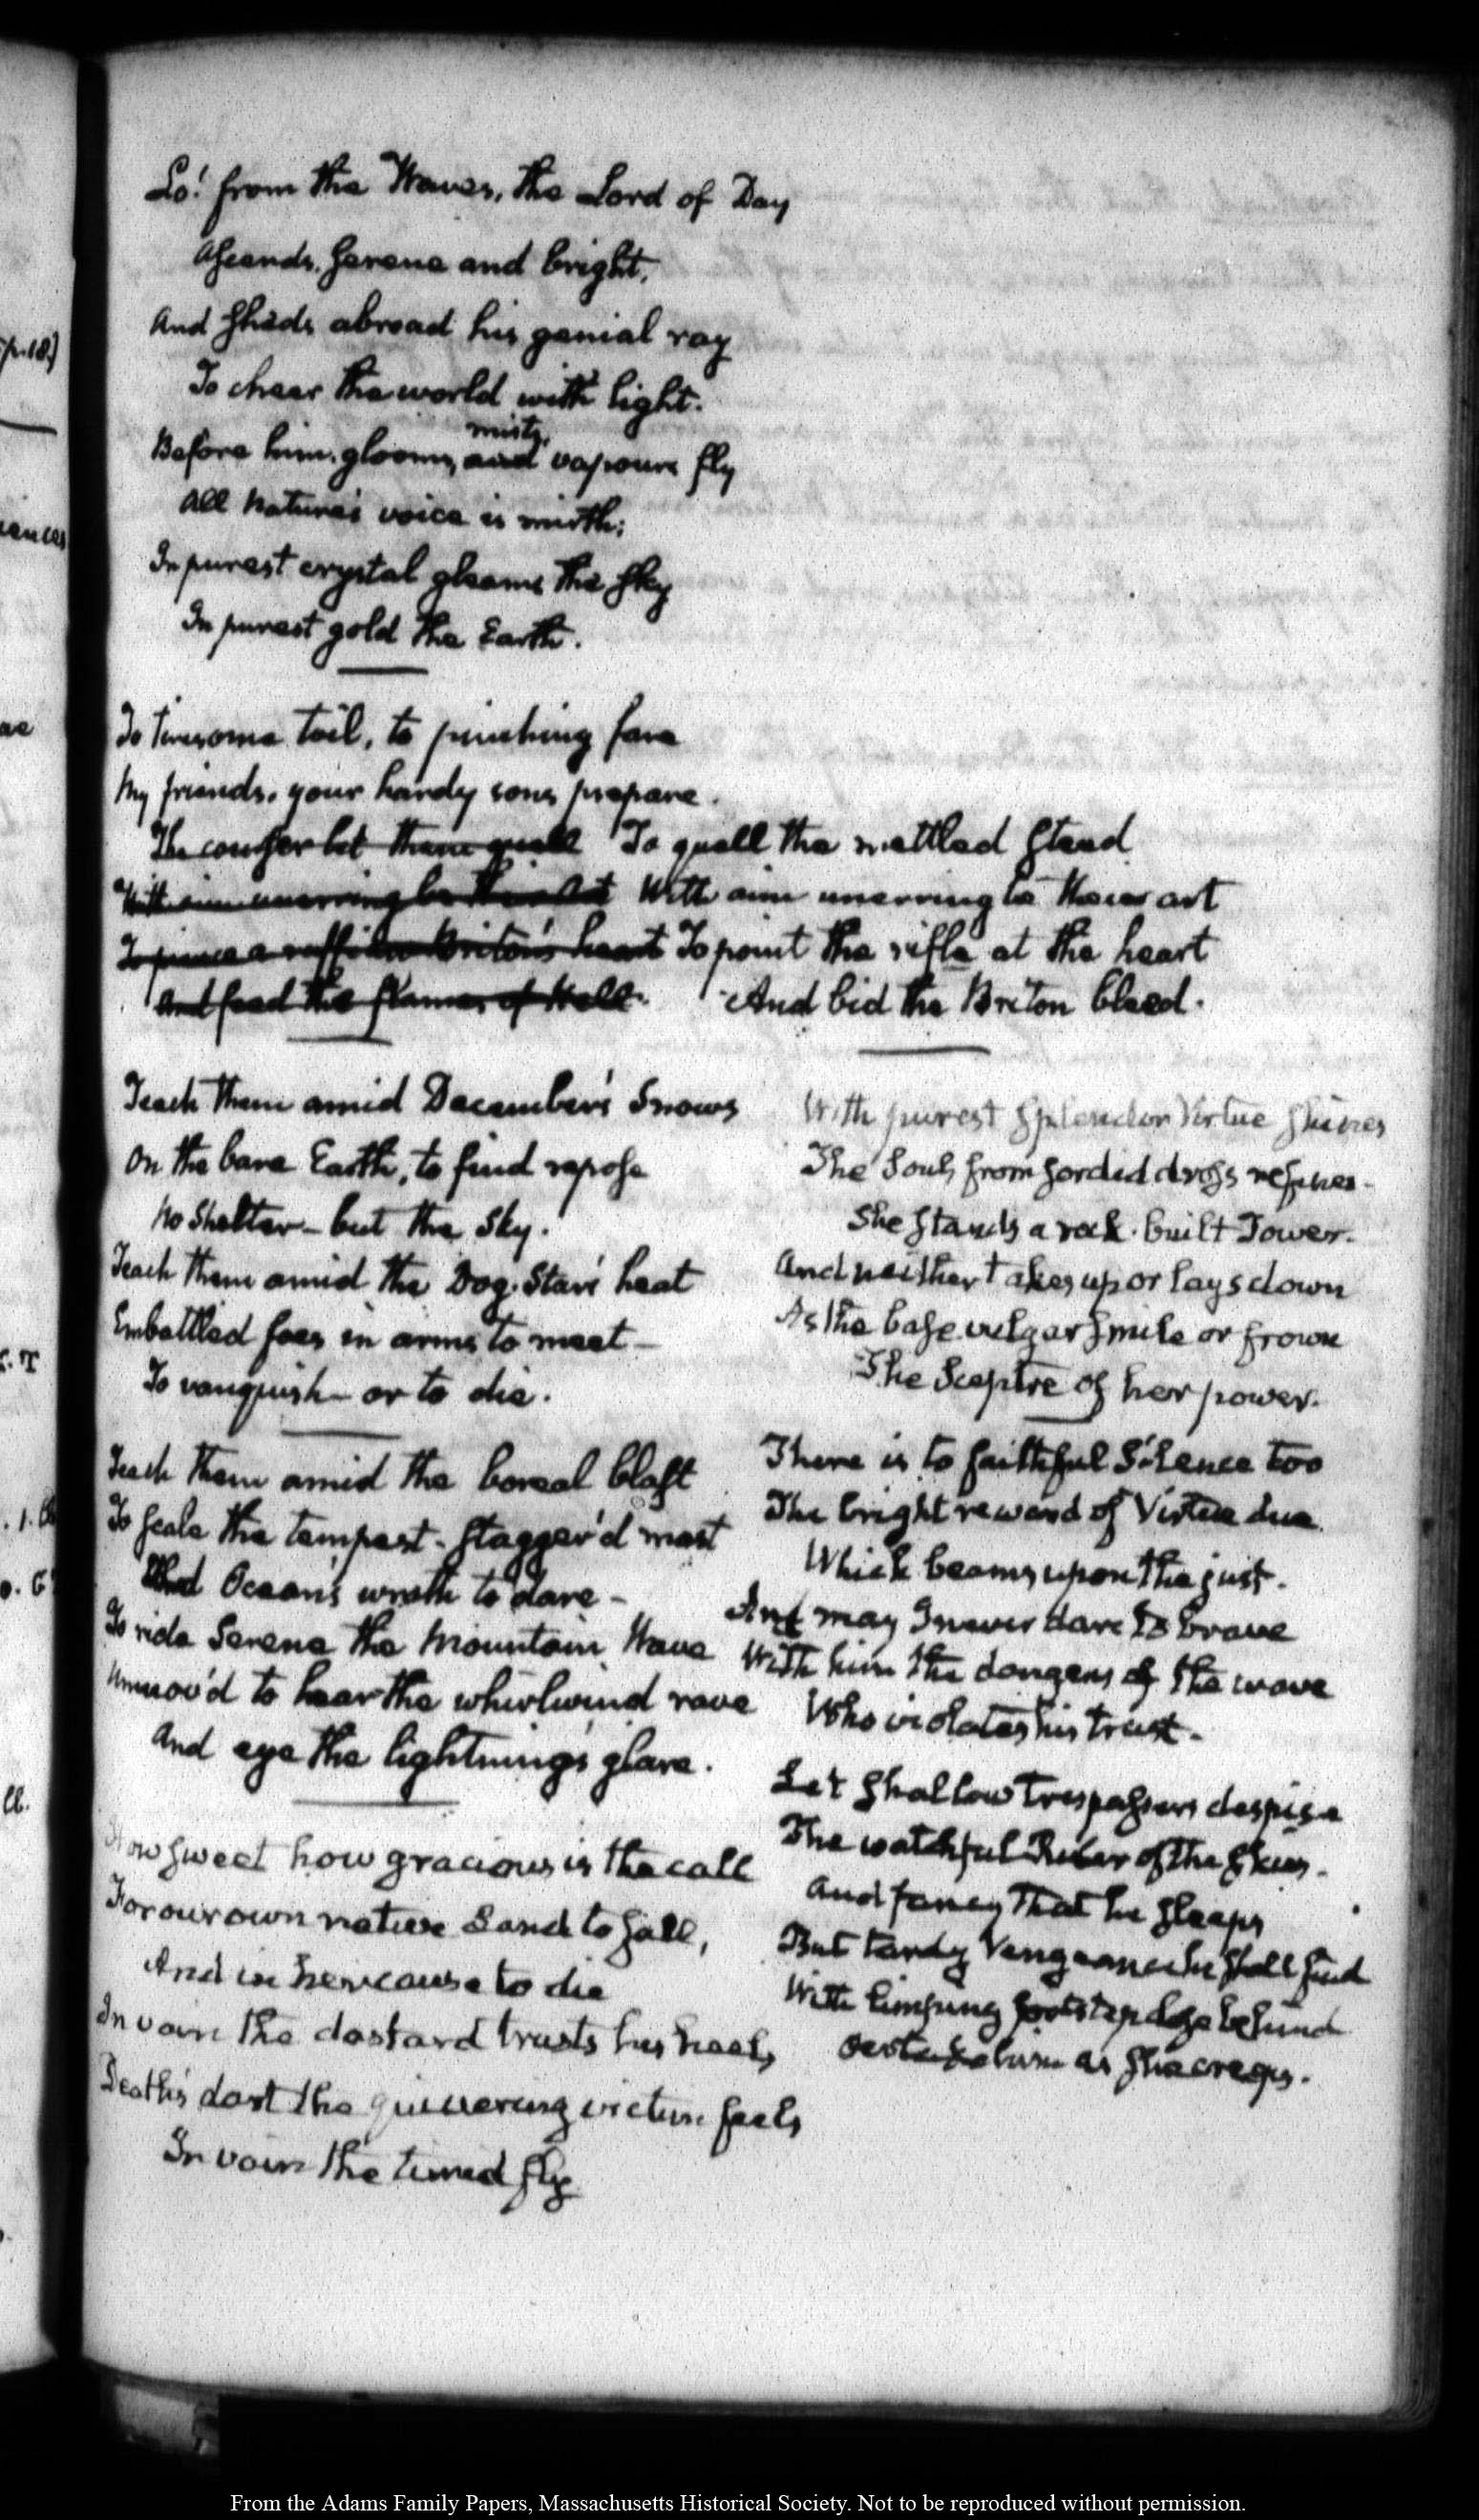 Lo! from the Waves, the Lord of Day
Ascends, serene and bright,
And sheds abroad his genial ray
To chear the world with light.
mists,
Before him, glooms, and vapours fly
All nature's voice is mirth;
In purest crystal gleams the sky
In purest gold the Earth.
To tiresome toil, to pinching fare
My friends, your hardy sons prepare.
The courser let them quell To quell the mettled steed
With aim unerring be their Art With aim unerring be their art
To pierce a ruffian Briton's heart To point the rifle at the heart
And feed the flames of Hell. And bid the Briton bleed.
Teach them amid December's Snows
On the bare Earth, to find repose
No Shelter – but the Sky.
Teach them amid the Dog-Star's heat
Embattled foes in arms to meet –
To vanquish – or to die.
Teach them amid the boreal blast
To scale the tempest-stagger'd mast
Ocean's wrath to dare –
To ride Serene the Mountain Wave
Unmov'd to hear the whirlwind rave
And eye the lightning's glare.
How sweet how gracious is the call
For our own native Land to fall,
And in her cause to die
In vain the dastard trusts his heels,
Death's dart the quivering victim feels
In vain the timid fly
With purest Splendor Virtue shines
The Soul, from sordid dross refines.
She stands a rock-built Tower.
And neither takes up or lays down
As the base vulgar smile or frown
The Sceptre of her power.
There is to faithful Silence too
The bright reward of Virtue due
Which beams upon the just.
And may I never dare to brave
With him the dangers of the wave
Who violates his trust.
Let shallow trespassers despise
The watchful Ruler of the skies.
And fancy that he sleeps
But tardy Vengeance he shall find
With limping footstep close behind
him as she creeps.
p. 18)
From the Adams Family Papers, Massachusetts Historical Society. Not to be reproduced without permission.